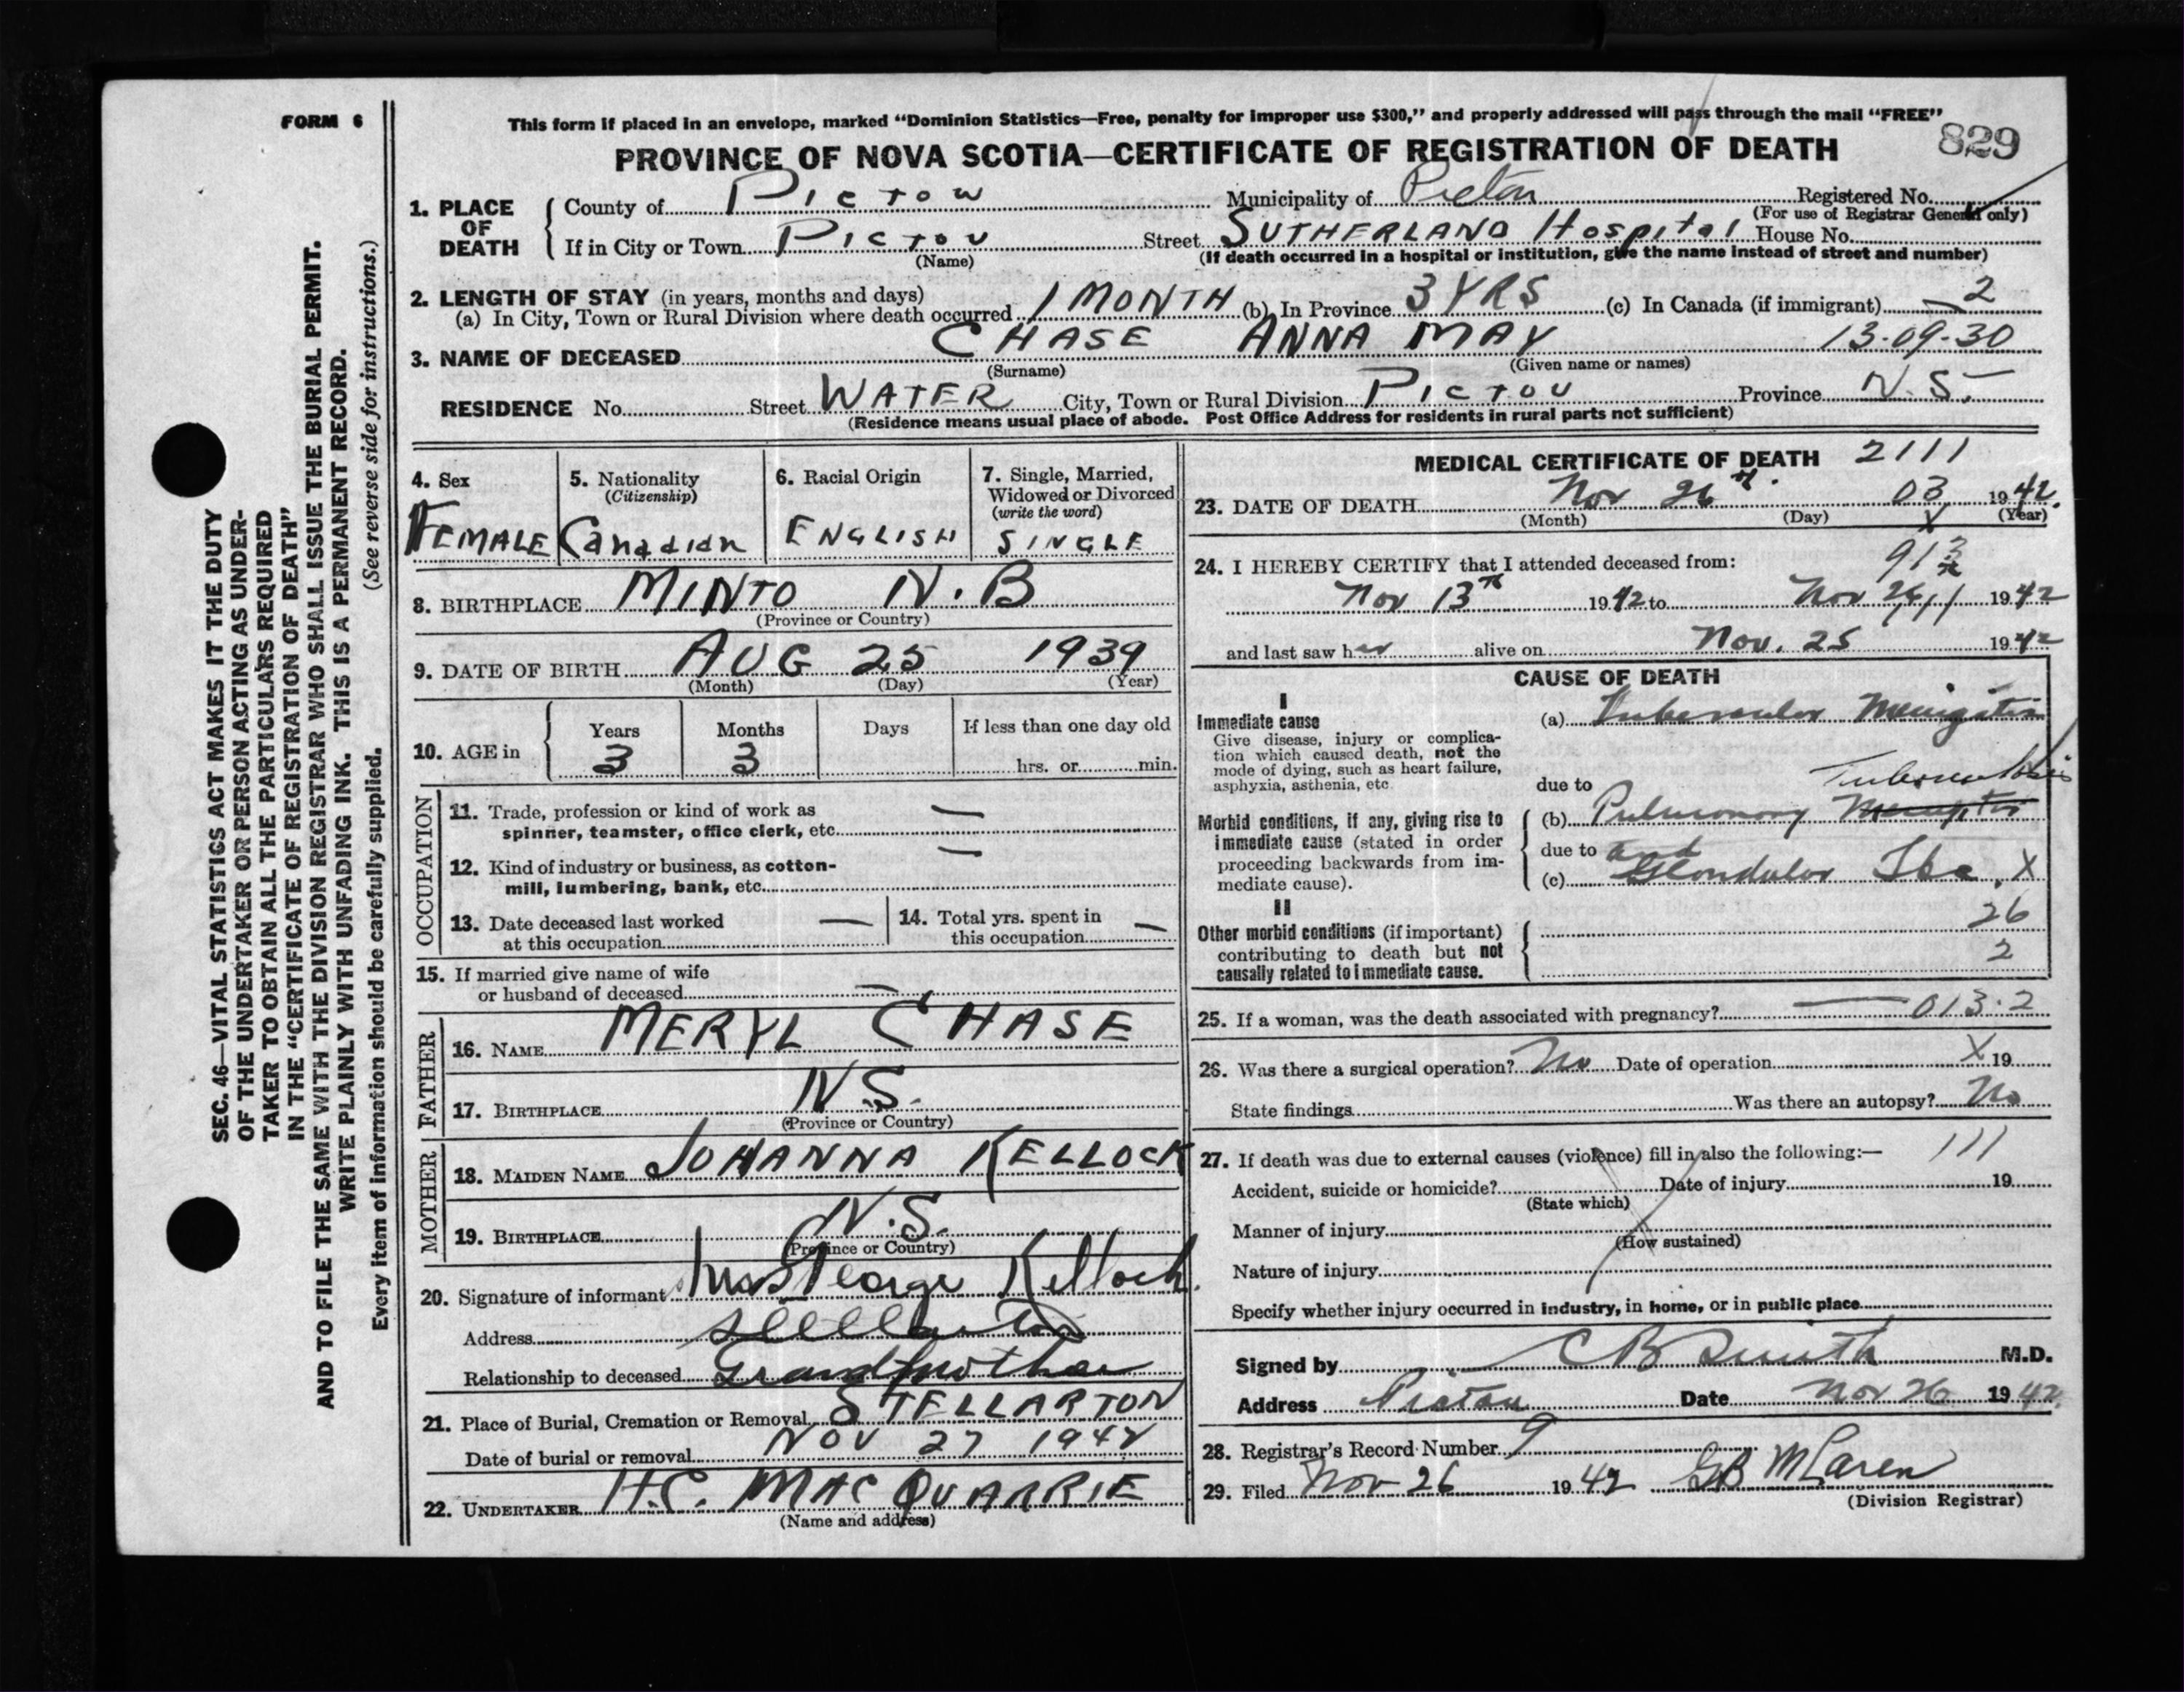 FORM 6
SEC. 46—VITAL STATISTICS ACT MAKES IT THE DUTY
OF THE UNDERTAKER OR PERSON ACTING AS UNDER-
TAKER TO OBTAIN ALL THE PARTICULARS REQUIRED
IN THE "CERTIFICATE OF REGISTRATION OF DEATH"
AND TO FILE THE SAME WITH THE DIVISION REGISTRAR WHO SHALL ISSUE THE BURIAL PERMIT.
WRITE PLAINLY WITH UNFADING INK. THIS IS A PERMANENT RECORD.
Every item of information should be carefully supplied. (See reverse side for instructions.)
This form if placed in an envelope, marked "Dominion Statistics—Free, penalty for improper use $300," and properly addressed will pass through the mail "FREE"
PROVINCE OF NOVA SCOTIA—CERTIFICATE OF REGISTRATION OF DEATH 829
1. PLACE OF DEATH County of Pictou Municipality of Pictou Registered No.
(For use of Registrar General only)
If in City or Town Pictou Street SUTHERLAND Hospital House No.
(Name) (If death occurred in a hospital or institution, give the name instead of street and number)
2. LENGTH OF STAY (in years, months and days)
(a) In City, Town or Rural Division where death occurred 1 MONTH (b) In Province 3 YRS (c) In Canada (if immigrant) 2
3. NAME OF DECEASED CHASE ANNA MAY 13-09-30
(Surname) (Given name or names)
RESIDENCE No. Street WATER City, Town or Rural Division PICTOU Province N.S.
(Residence means usual place of abode. Post Office Address for residents in rural parts not sufficient)
4. Sex FEMALE
5. Nationality (Citizenship) Canadian
6. Racial Origin ENGLISH
7. Single, Married, Widowed or Divorced (write the word) SINGLE
8. BIRTHPLACE MINTO N.B
(Province or Country)
9. DATE OF BIRTH AUG 25 1939
(Month) (Day) (Year)
10. AGE in Years 3 Months 3 Days If less than one day old hrs. or min.
OCCUPATION
11. Trade, profession or kind of work as
spinner, teamster, office clerk, etc. —
12. Kind of industry or business, as cotton-
mill, lumbering, bank, etc. —
13. Date deceased last worked
at this occupation —
14. Total yrs. spent in
this occupation —
15. If married give name of wife
or husband of deceased —
FATHER
16. NAME MERYL CHASE
17. BIRTHPLACE N.S.
(Province or Country)
MOTHER
18. MAIDEN NAME JOHANNA KELLOCK
19. BIRTHPLACE N.S.
(Province or Country)
20. Signature of informant Mrs George Kellock
Address Stellarton
Relationship to deceased Grandmother
21. Place of Burial, Cremation or Removal STELLARTON
Date of burial or removal NOV 27 1942
22. UNDERTAKER H.C. MACQUARRIE
(Name and address)
MEDICAL CERTIFICATE OF DEATH 2111
23. DATE OF DEATH Nov 26th. 03 1942.
(Month) (Day) X (Year)
24. I HEREBY CERTIFY that I attended deceased from: 913
Nov 13th 1942 to Nov 26 1942
and last saw her alive on Nov. 25 1942
CAUSE OF DEATH
I
Immediate cause
Give disease, injury or complica-
tion which caused death, not the
mode of dying, such as heart failure,
asphyxia, asthenia, etc
(a) Tubercular Meningitis
due to
(b) Pulmonary Tuberculosis
Morbid conditions, if any, giving rise to
immediate cause (stated in order
proceeding backwards from im-
mediate cause).
due to and
(c) Glandular Tbc. X
II
Other morbid conditions (if important)
contributing to death but not
causally related to immediate cause.
26
2
25. If a woman, was the death associated with pregnancy? — 013.2
26. Was there a surgical operation? No Date of operation X 19
State findings Was there an autopsy? No
27. If death was due to external causes (violence) fill in also the following:— 111
Accident, suicide or homicide? Date of injury 19
(State which)
Manner of injury
(How sustained)
Nature of injury
Specify whether injury occurred in industry, in home, or in public place
Signed by CB Smith M.D.
Address Pictou Date Nov 26 1942
28. Registrar's Record Number 9
29. Filed Nov 26 1942 GB McLaren
(Division Registrar)